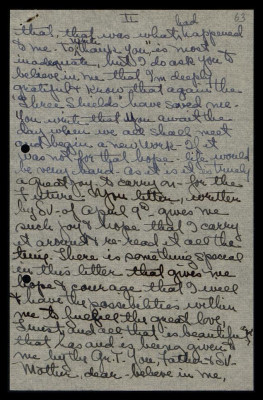 II 63
had
that, that was what happened
to me. To write "Thank you" is most
inadequate, but I do ask you to
believe in me that I'm deeply
grateful & know that again the
Three Shields have saved me.
You write that you await the
day when we all shall meet
and begin a new work. If it
was not for that hope life would
be very hard. As it is it is truly
a great joy to carry on for the
Future. Your letter, written
by SV. of April 9th gives me
such joy & hope that I carry
it around & re-read it all the
time. There is something special
in this letter that gives me
hope & courage that I will
& have the possibilities within
me to the great love,
trust and all that is beautiful
that has and is being given to
me by the Gr.T. You, Father & SV.
Mother, dear believe in me,